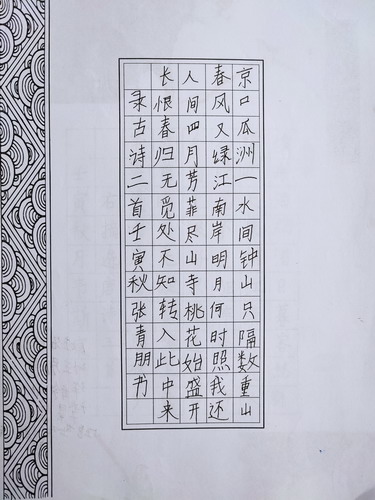 京口瓜洲一水间钟山只隔数重山
春风又绿江南岸明月何时照我还
人间四月芳菲尽山寺桃花始盛开
长恨春归无觅处不知转入此中来
录古诗二首壬寅秋张青朋书